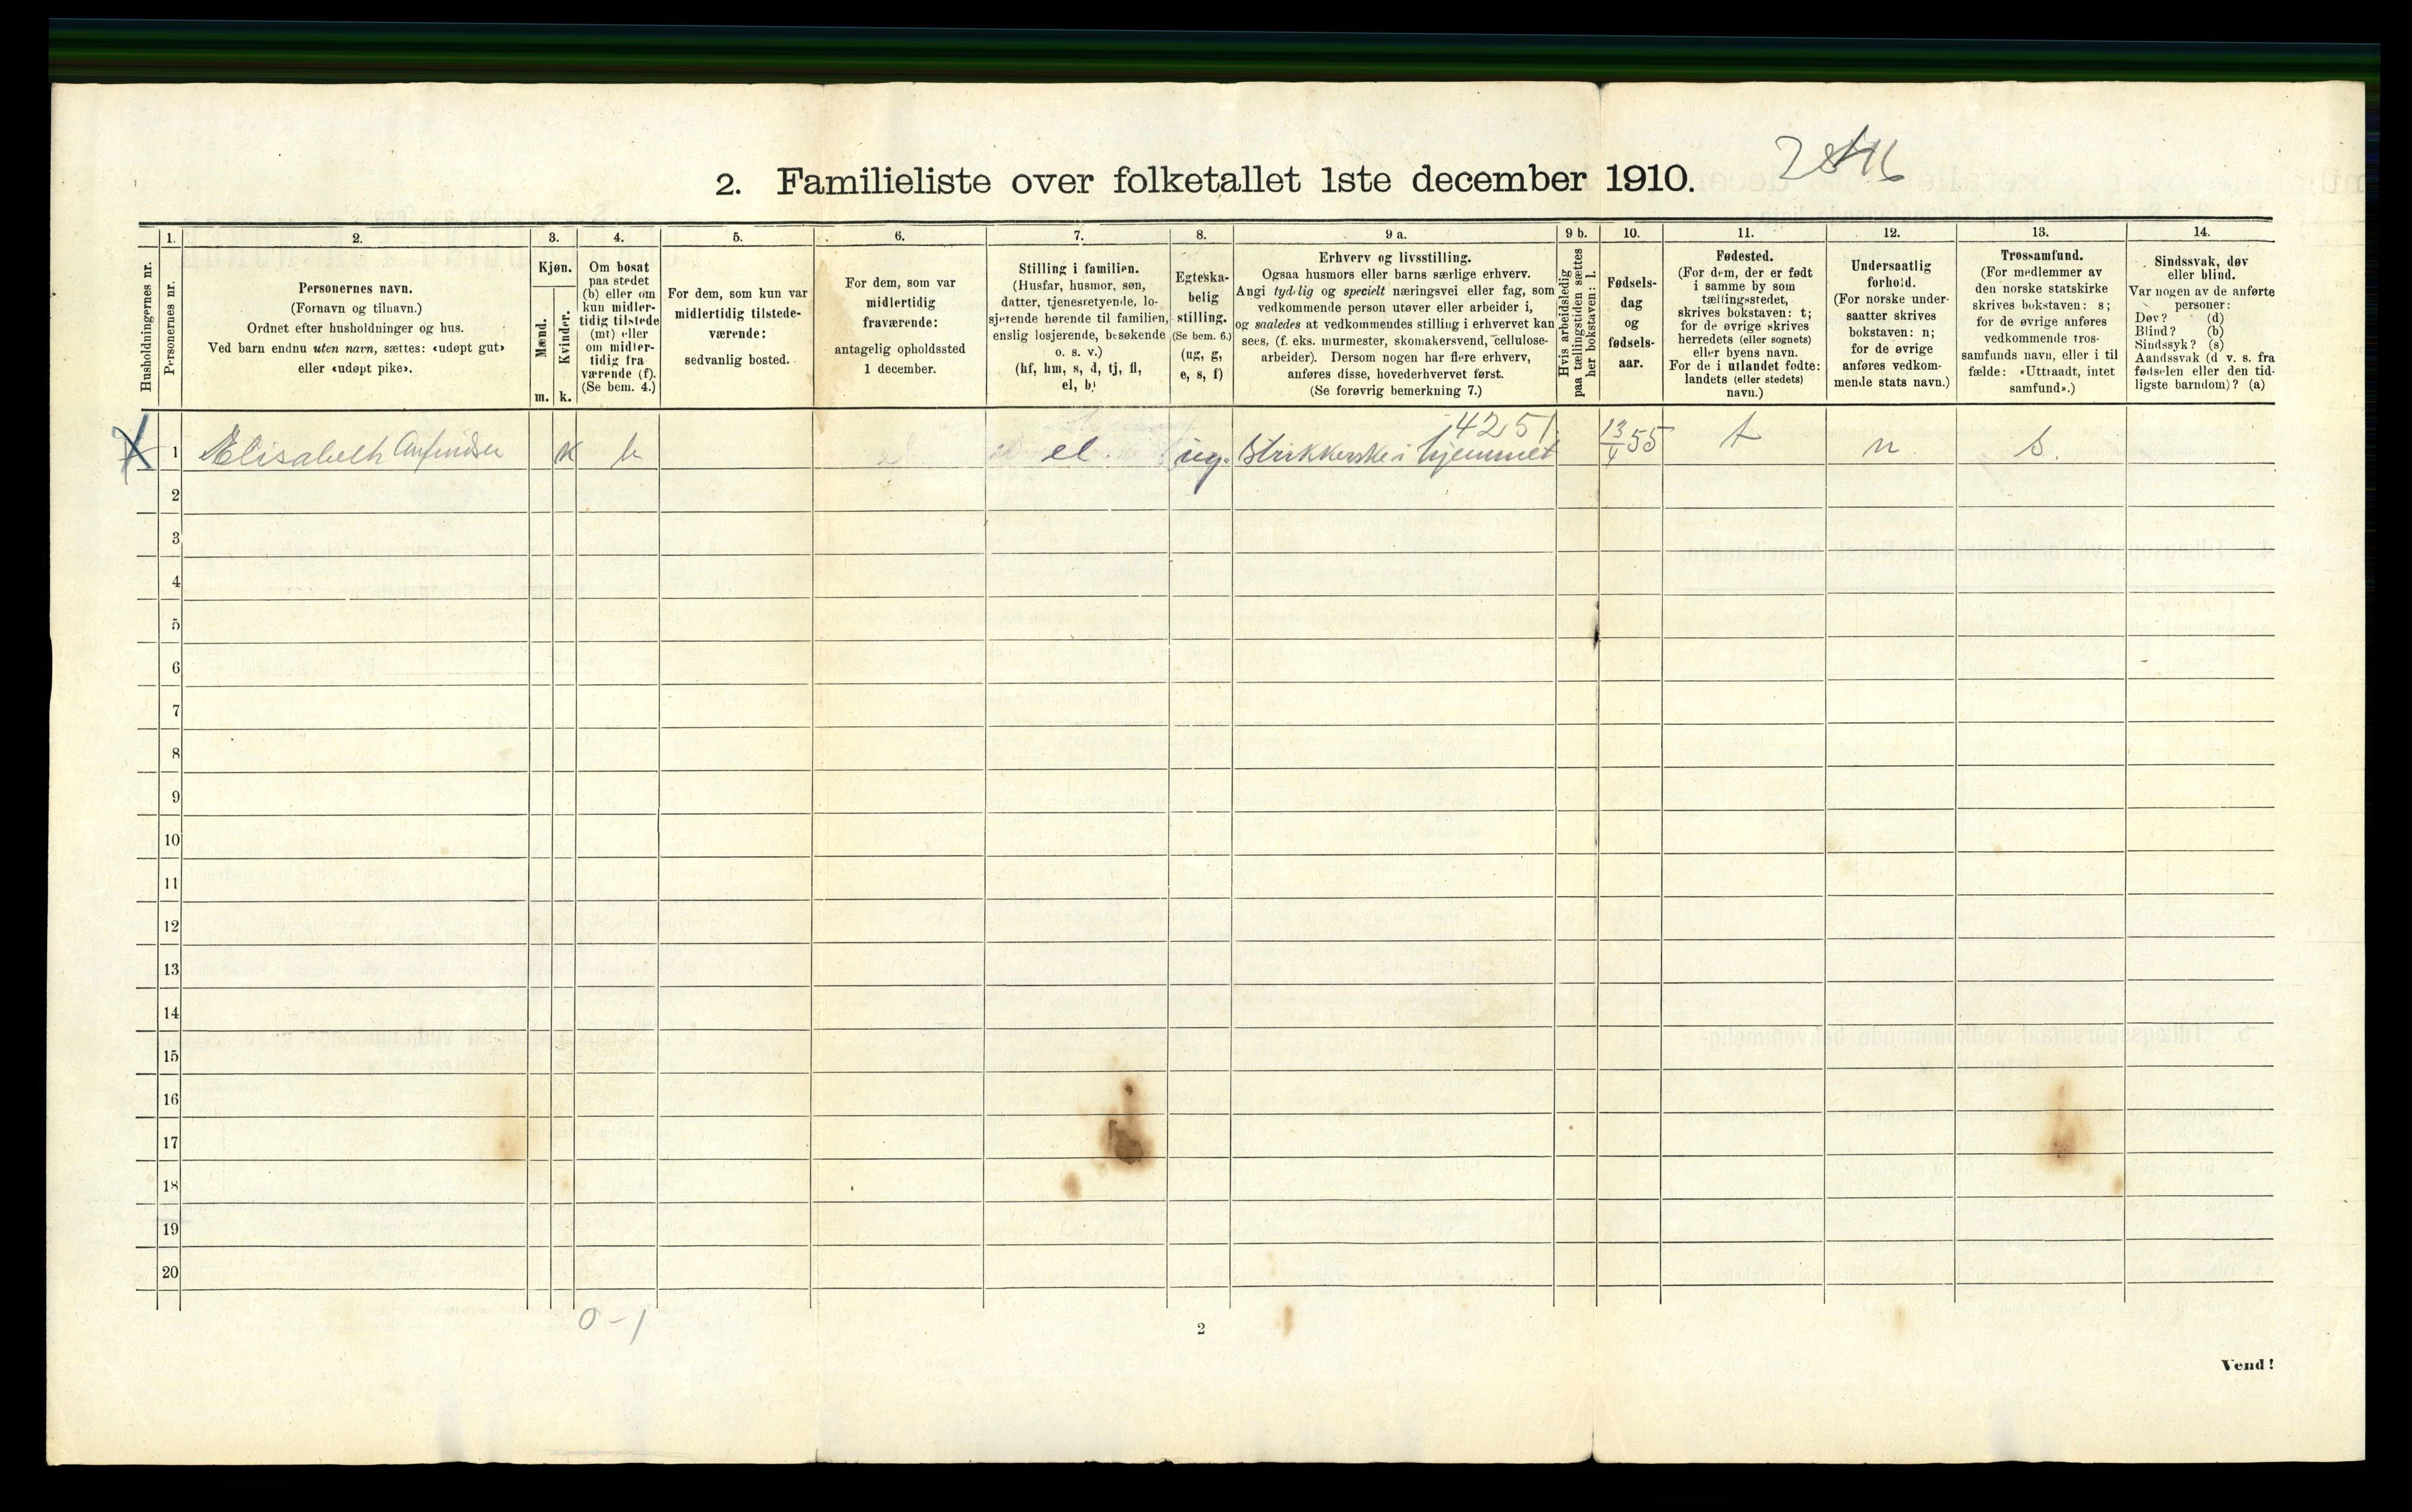 2. Familieliste over folketallet 1ste december 1910.
Husholdningernes nr.
1.
Personernes nr.
2.
Personernes navn.
(Fornavn og tilnavn.)
Ordnet efter husholdninger og hus.
Ved barn endnu uten navn, sættes: «udøpt gut»
eller «udøpt pike».
3.
Kjøn.
Mænd.
Kvinder.
m.
k.
4.
Om bosat
paa stedet
(b) eller om
kun midler-
tidig tilstede
(mt) eller
om midler-
tidig fra
værende (f).
(Se bem. 4.)
5.
For dem, som kun var
midlertidig tilstede-
værende:
sedvanlig bosted.
6.
For dem, som var
midlertidig
fraværende:
antagelig opholdssted
1 december.
7.
Stilling i familien.
(Husfar, husmor, søn,
datter, tjenestetyende, lo-
sjerende hørende til familien,
enslig losjerende, besøkende
o. s. v.)
(hf, hm, s, d, tj, fl,
el, b)
8.
Egteska-
belig
stilling.
(Se bem. 6.)
(ug, g,
e, s, f)
9 a.
Erhverv og livsstilling.
Ogsaa husmors eller barns særlige erhverv.
Angi tydelig og specielt næringsvei eller fag, som
vedkommende person utøver eller arbeider i,
og saaledes at vedkommendes stilling i erhvervet kan
sees, (f. eks. murmester, skomakersvend, cellulose-
arbeider). Dersom nogen har flere erhverv,
anføres disse, hovederhvervet først.
(Se forøvrig bemerkning 7.)
9 b.
Hvis arbeidsledig
paa tællingstiden sættes
her bokstaven: l.
10.
Fødsels-
dag
og
fødsels-
aar.
11.
Fødested.
(For dem, der er født
i samme by som
tællingsstedet,
skrives bokstaven: t;
for de øvrige skrives
herredets (eller sognets)
eller byens navn.
For de i utlandet fødte:
landets (eller stedets)
navn.)
12.
Undersaatlig
forhold.
(For norske under-
saatter skrives
bokstaven: n;
for de øvrige
anføres vedkom-
mende stats navn.)
13.
Trossamfund.
(For medlemmer av
den norske statskirke
skrives bokstaven: s;
for de øvrige anføres
vedkommende tros-
samfunds navn, eller i til
fælde: «Uttraadt, intet
samfund».)
14.
Sindssvak, døv
eller blind.
Var nogen av de anførte
personer:
Døv? (d)
Blind? (b)
Sindssyk? (s)
Aandssvak (d v. s. fra
fødselen eller den tid-
ligste barndom)? (a)
4251
1 Elisabeth Anfindsen k b el. ug. Strikkerske i hjemmet 13/4 55 t n s.
2
3
4
5
6
7
8
9
10
11
12
13
14
15
16
17
18
19
20
0-1
2
Vend!